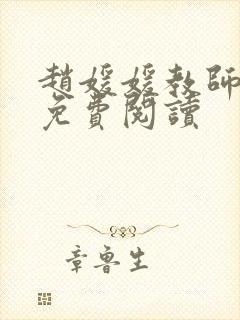 趙媛媛教師
免費閱讀
章魯生